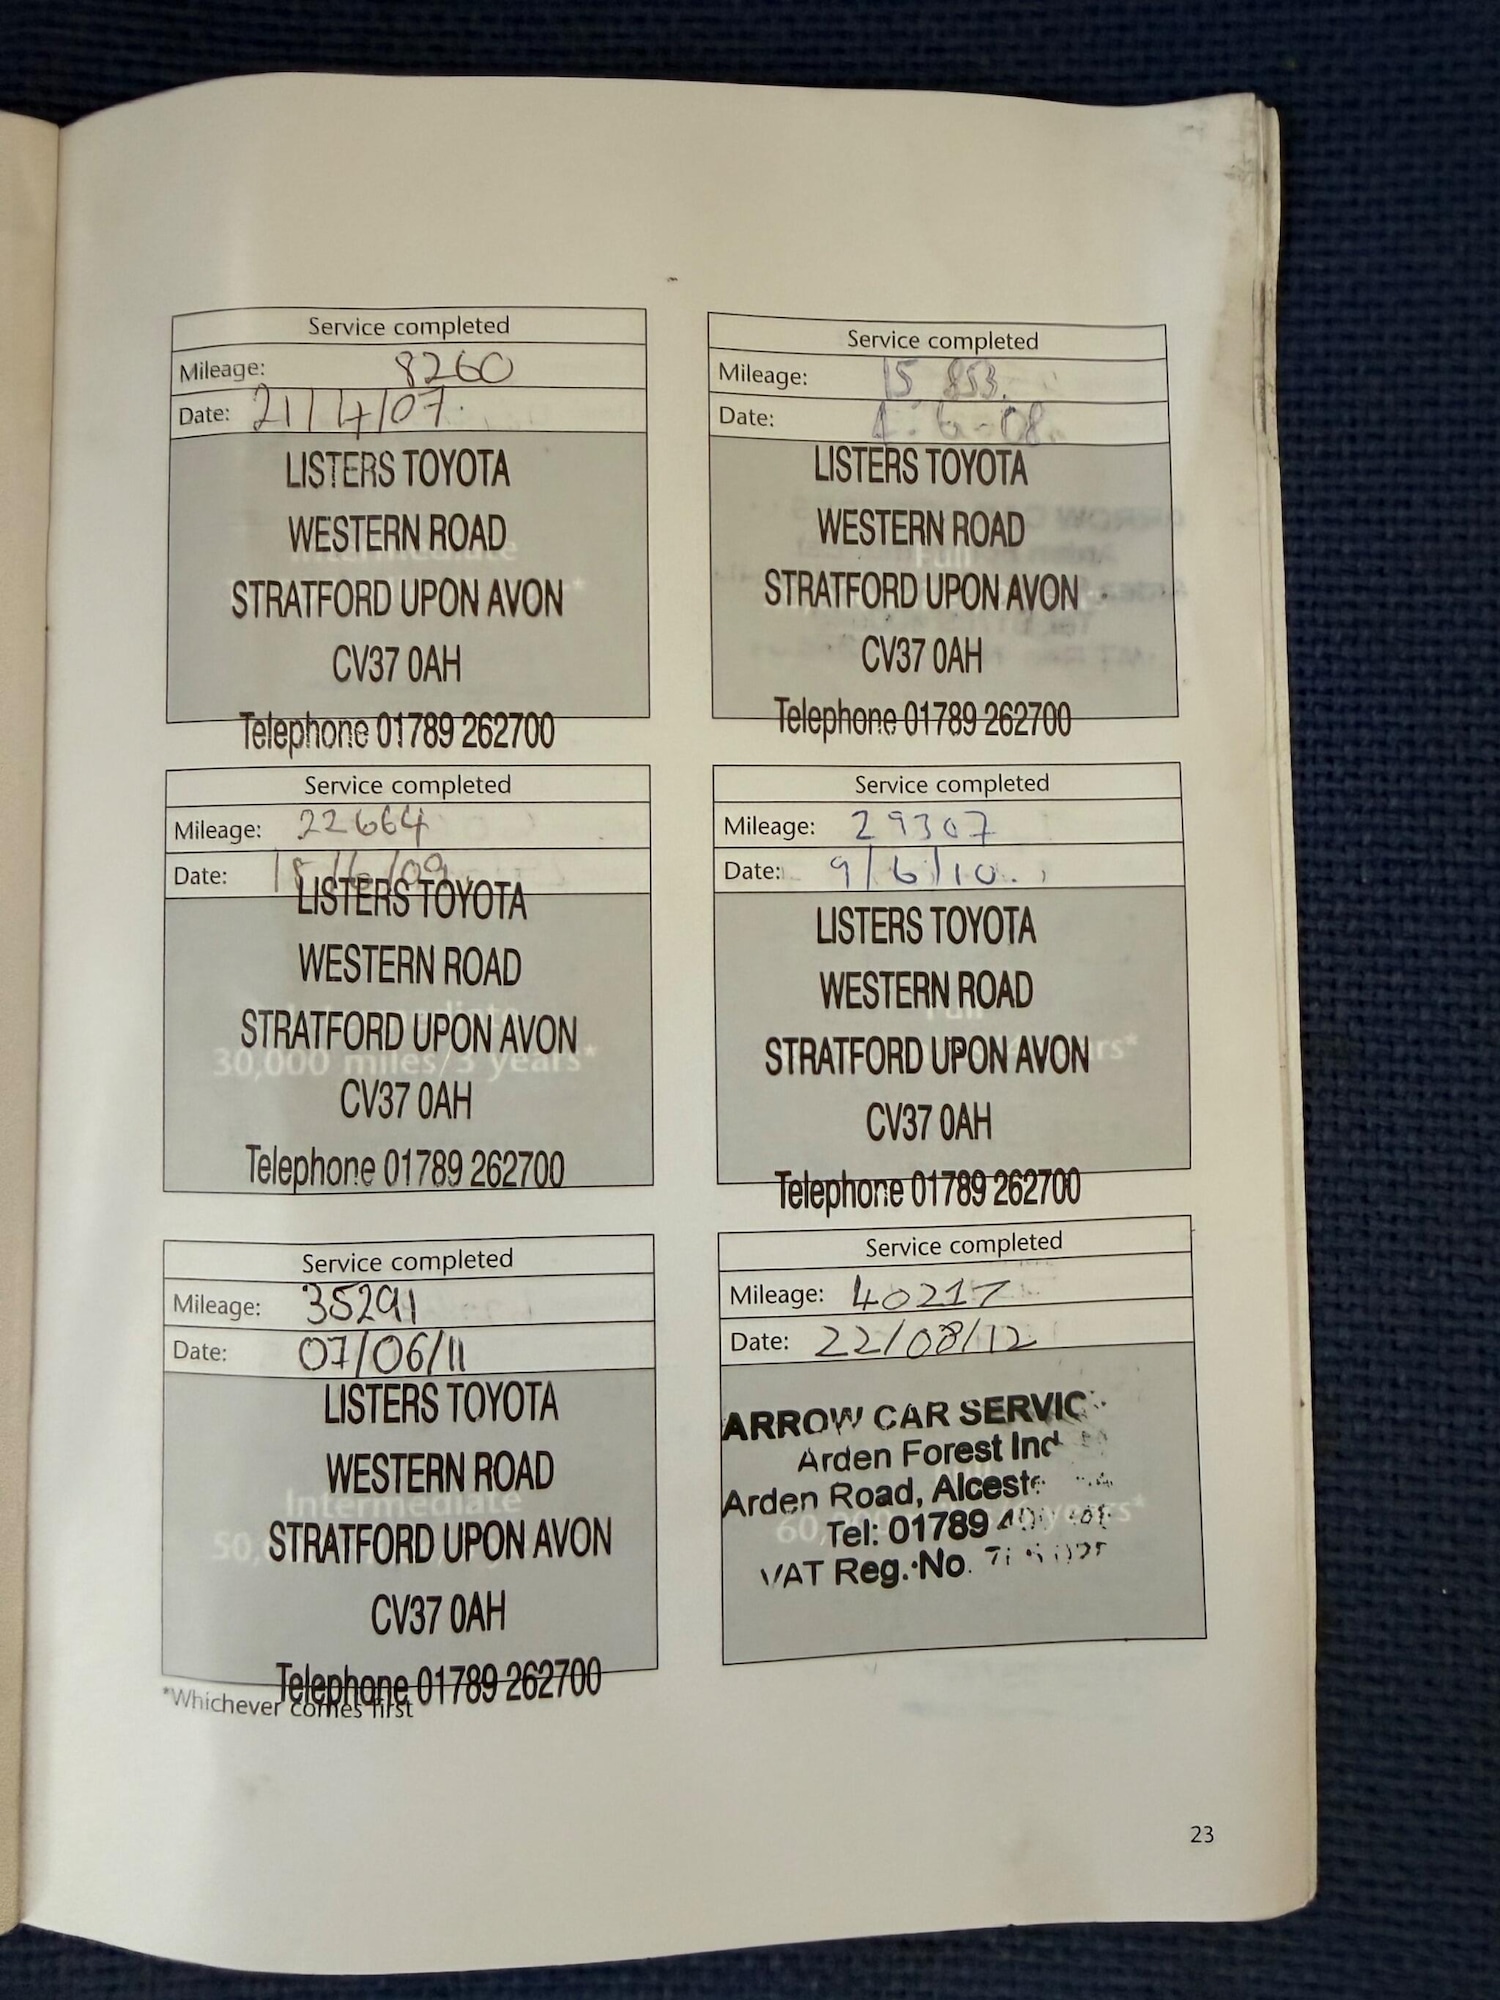 Service completed
Mileage: 8260
Date: 21/4/07.
LISTERS TOYOTA
WESTERN ROAD
STRATFORD UPON AVON
CV37 0AH
Telephone 01789 262700
Service completed
Mileage: 15 853.
Date: 6-08
LISTERS TOYOTA
WESTERN ROAD
STRATFORD UPON AVON
CV37 0AH
Telephone 01789 262700
Service completed
Mileage: 22664
Date: /6/09
LISTERS TOYOTA
WESTERN ROAD
STRATFORD UPON AVON
30,000 miles/3 years*
CV37 0AH
Telephone 01789 262700
Service completed
Mileage: 29307
Date: 9/6/10.
LISTERS TOYOTA
WESTERN ROAD
Full
STRATFORD UPON AVON
CV37 0AH
Telephone 01789 262700
Service completed
Mileage: 35291
Date: 07/06/11
LISTERS TOYOTA
WESTERN ROAD
Intermediate
STRATFORD UPON AVON
CV37 0AH
Telephone 01789 262700
Service completed
Mileage: 40217
Date: 22/08/12
ARROW CAR
Arden Forest
Arden Road,
Tel: 01789
VAT Reg. No.
*Whichever comes first
23